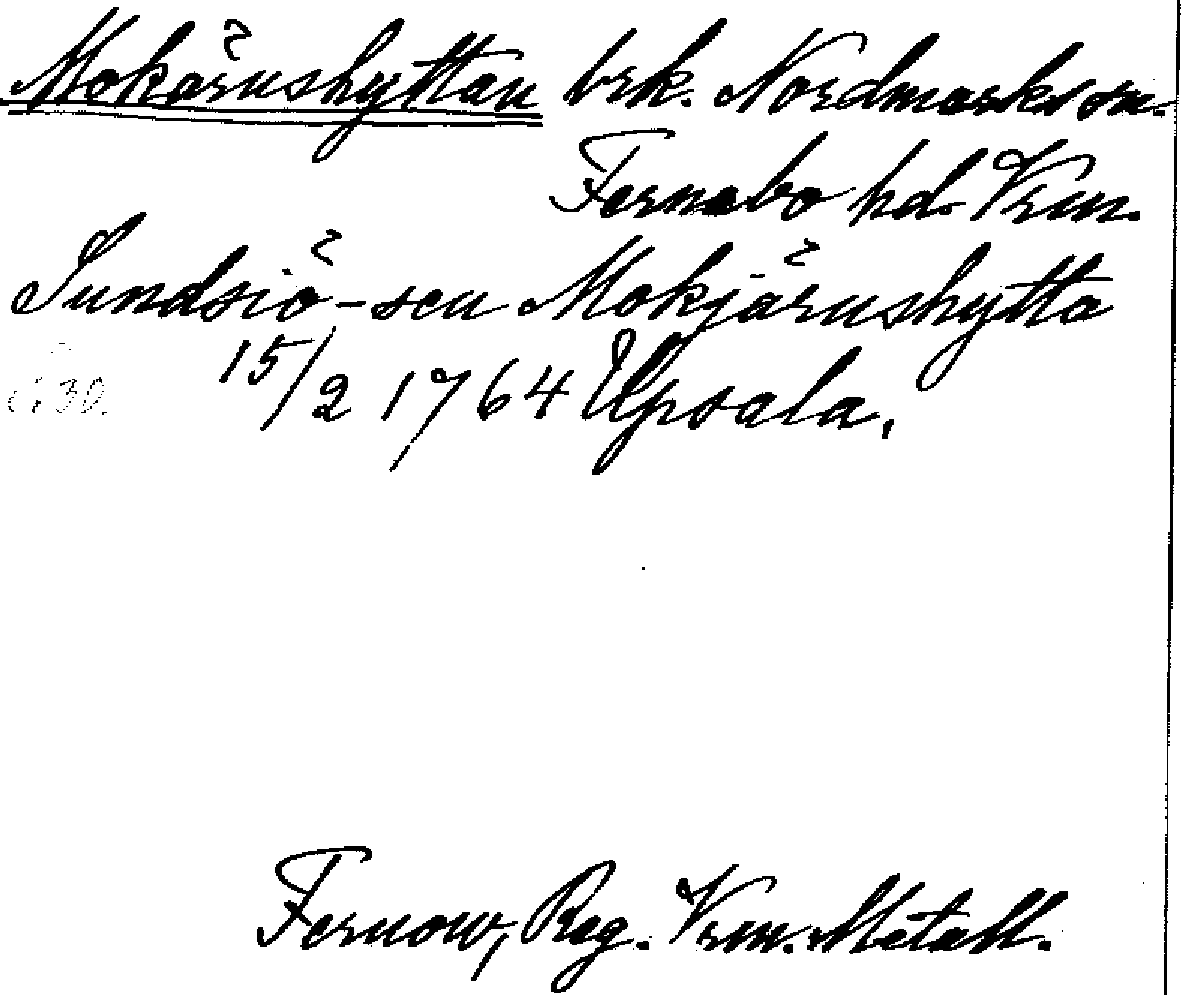 Mokärnshyttan brk. Nordmarks sn.
Fernebo hd. Vrm.
Sundsiö-seu Mokjärnshytta
15/2 1764 Upsala.
s. 30.
Fernow, Reg. Vrm. Metall.